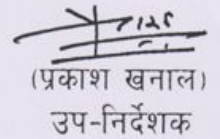 (प्रकाश खनाल)
उप-निर्देशक